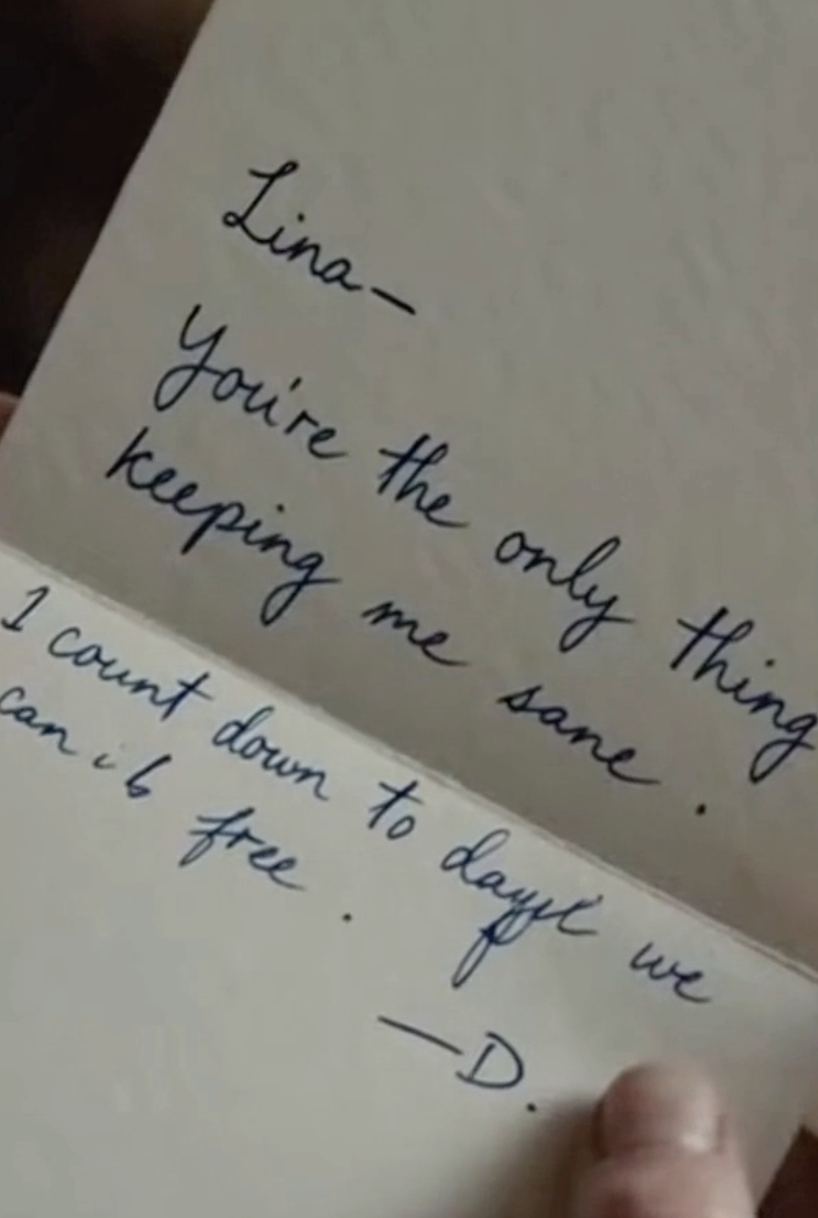 Lina—
You're the only thing
keeping me sane.
I count down to we
can free.
—D.